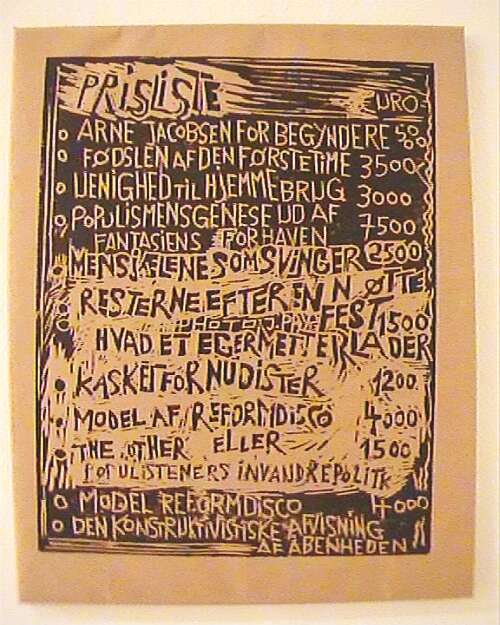 PRISLISTE
EURO
ARNE JACOBSEN FOR BEGYNDERE
FØDSLEN AF DEN FØRSTE TIME 3500
UENIGHED TIL HJEMMEBRUG 3000
POPULISMENS GENESE UD AF 7500
FANTASIENS FORHAVEN
MENSKELENE SOM SVINGER 2500
RESTERNE EFTER EN NØTTE
FEST 1500
HVAD ET EGERM ETTERLADER
KASKET FOR NUDISTER 1200
MODEL AF REFORMDISCO 4000
THE OTHER ELLER 1500
POPULISTENERS INVANDREPOLITK
MODEL REFORMDISCO 4000
DEN KONSTRUKTIVISTISKE AFVISNING
AF ÅBENHEDEN